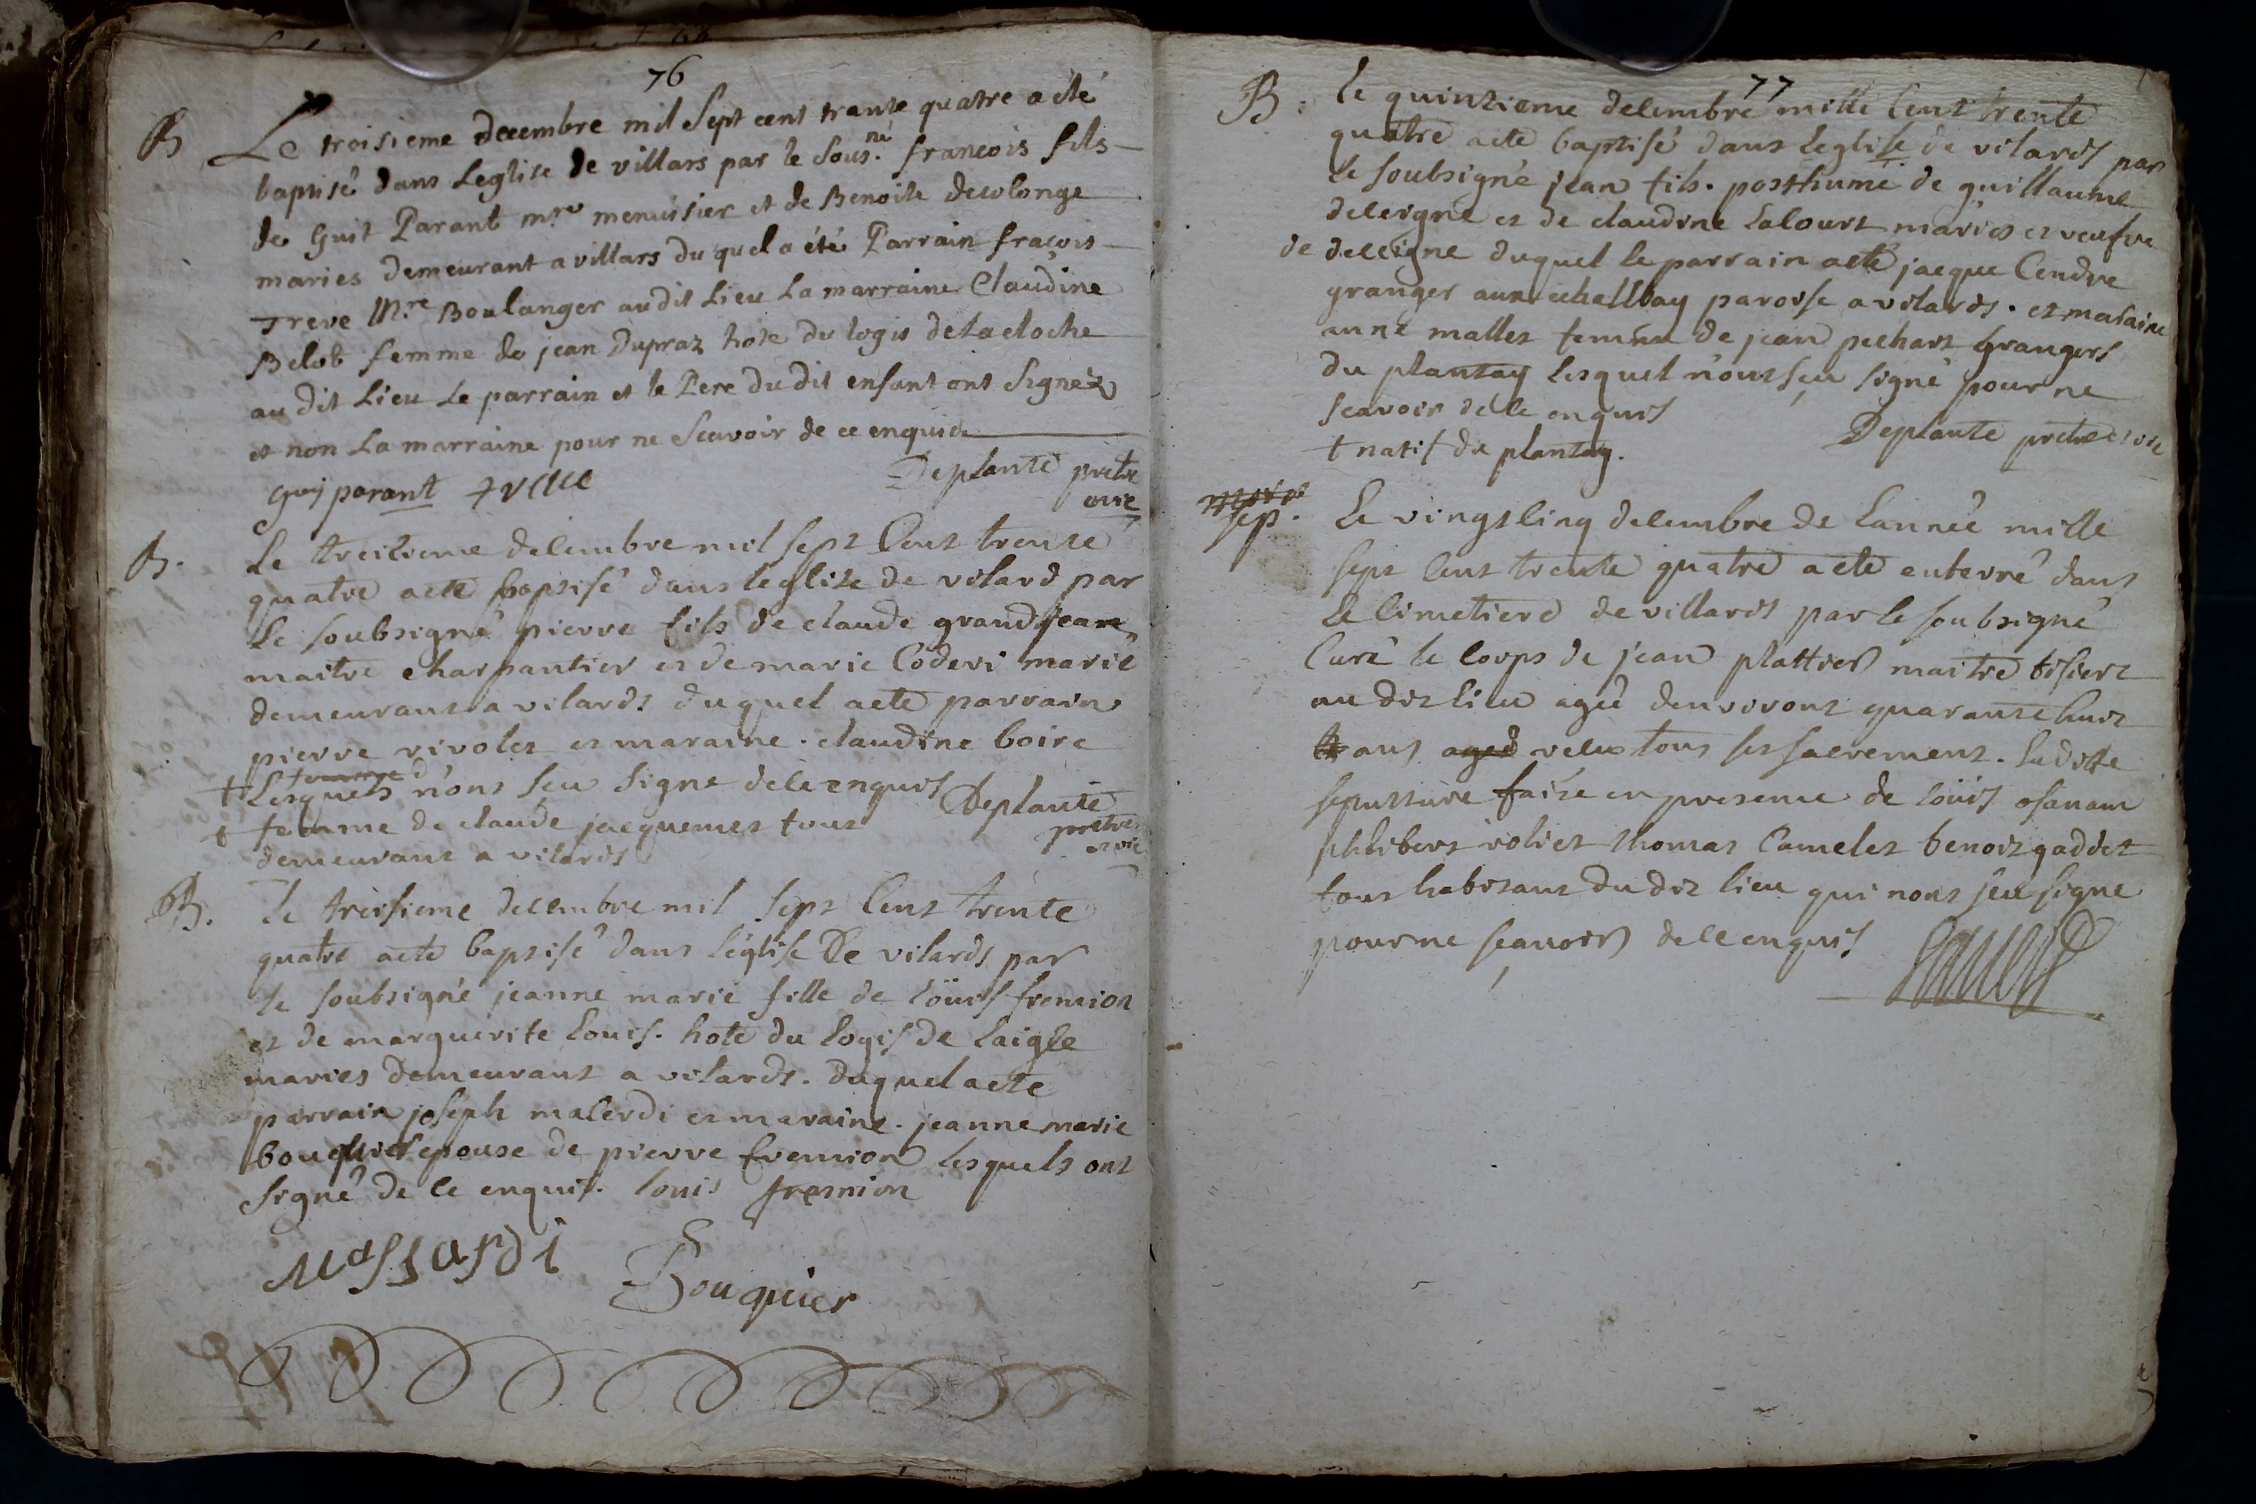 76
B Le troisieme decembre mil Sept cent trante quatre a été
baptisé dans Leglise de villars par le Sous.né françois fils
de Guit Parant m.re menuisier et de Benoite decolonge
maries demeurant a villars du quel a été Parrain fraçois
Treve M.re Boulanger au dit Lieu La marraine Claudine
Belot femme de jean Dupraz hote du logis de la cloche
au dit Lieu Le parrain et le Pere du dit enfant ont Signez
et non La marraine pour ne Scavoir de ce enquis
guy parant treve Deplante pretre
vic
B. Le treisieme decembre mil sept cent trente
quatre a ete baptisé dans leglise de vilard par
le soubsigné pierre fils de claude grand jean
maitre charpantier et de marie Coderi marié
demeurant a vilards duquel a ete parrain
pierre rivolet et maraine . claudine boire
† Lesquels n'ont seu signe de ce enquis Deplante
† femme de claude jacquemet tous pretre
demeurant a vilards et vic
B. le troisieme decembre mil sept cent trente
quatre a ete baptisé dans léglise De vilards par
le soubsigné jeanne marie fille de loüis fremion
et de marguerite Louis . hote du logis de Laigle
maries demeurant a vilards . duquel a ete
parrain joseph maserdi et maraine . jeanne marie
bouquier epouse de pierre fremion lesquels ont
signé de ce enquis . louis fremion
Massardi Bouquier
77
B. le quinzieme decembre mille cent trente
quatre a ete baptisé dans leglise de vilards par
le soubsigné jean fils . posthume de guillaume
deleigne et de claudine Lalourt mariés et veufve
de deleigne duquel le parrain a eté jacque Cendre
granger aux echallay paroise a vilards . et maraine
anne mallet femme de jean pechart grangers
du plantay lesquel n'ont sçu signé pour ne
scavoir de ce enquis
† natif du plantay . Deplante pretre et vic
sep. Le vingt cinq decembre de Lannée mille
sept cent trente quatre a ete enterré dans
le Cimetiere de villards par le soubsigné
Curé le corps de jean plattier maitre tissier
au dit lieu agé denviront quarante huit
ans agé recu tous ses sacrement . La ditte
sepulture faite en presence de loüis osanam
philibert roliet thomas Camelet benoit gaddet
tous habitant du dit lieu qui nont seu signe
pour ne sçavoir de ce enquis